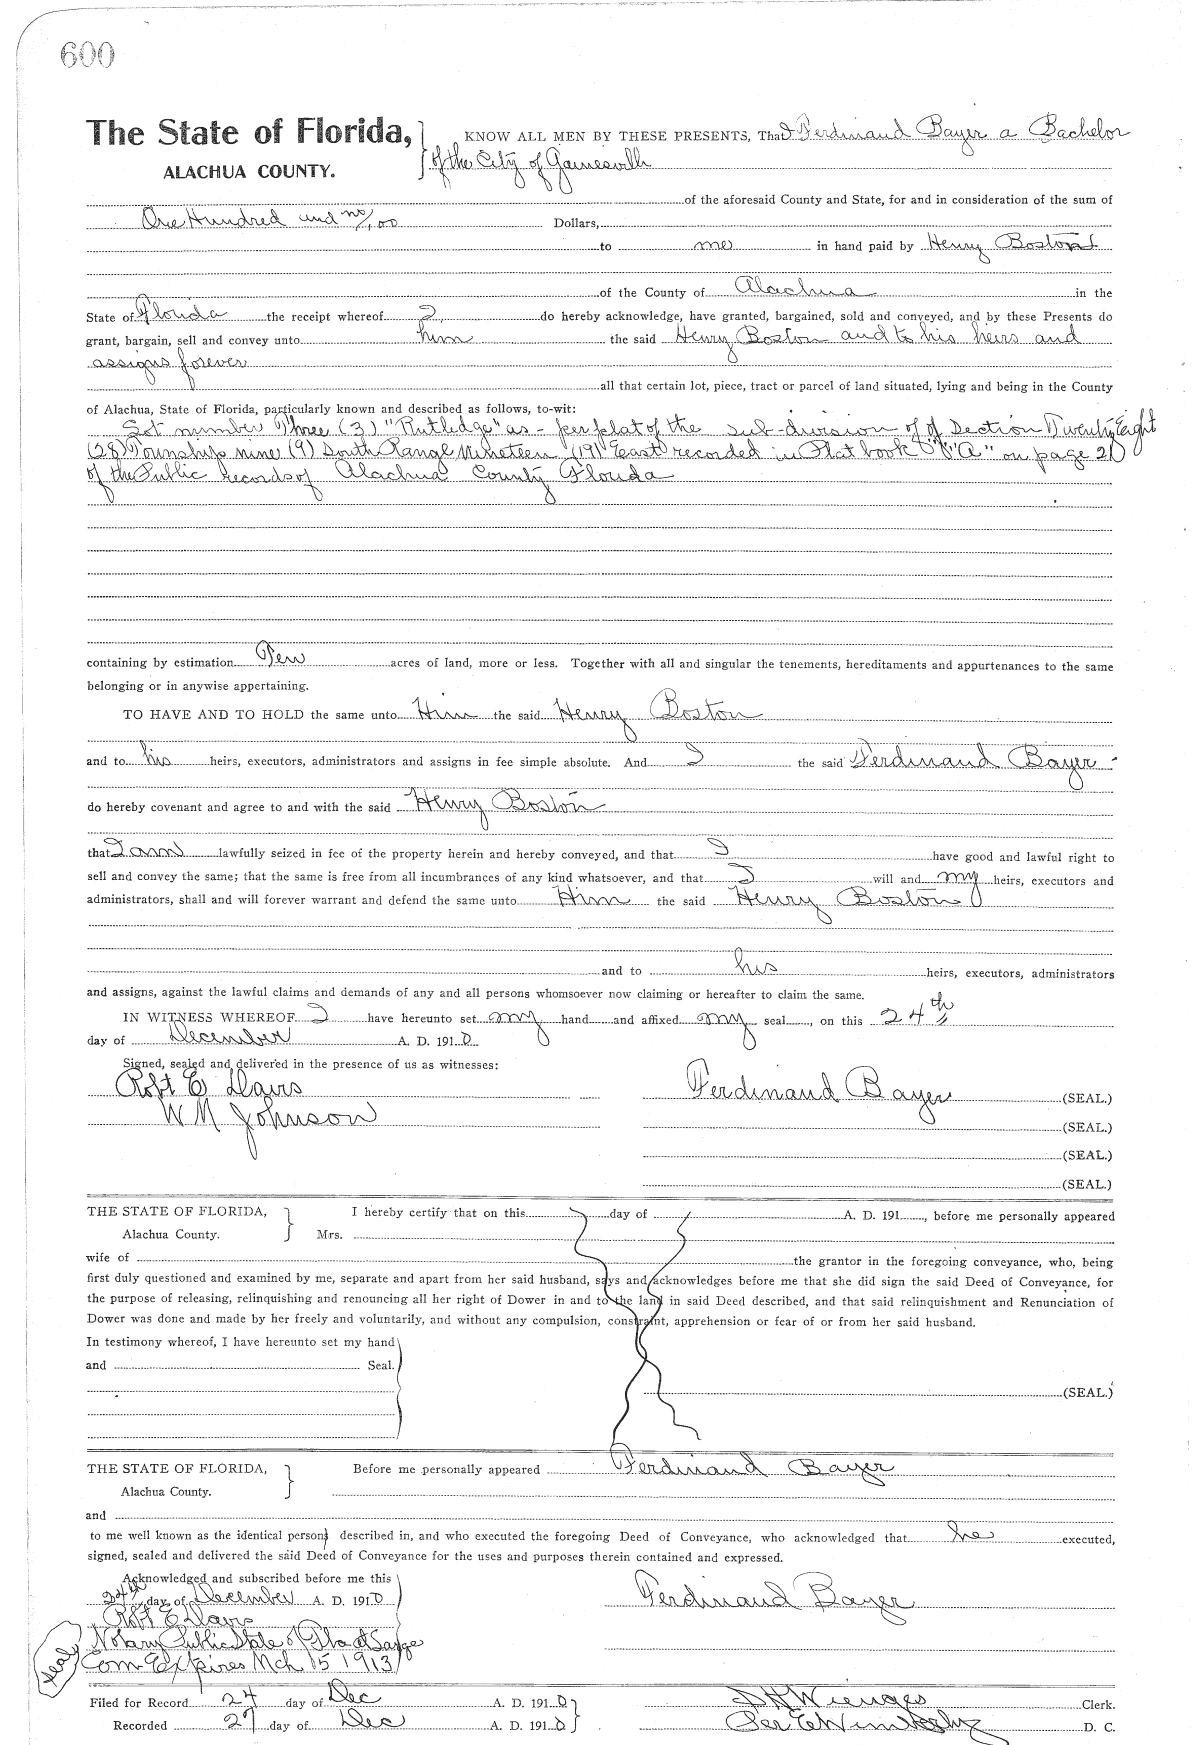 600
The State of Florida,
ALACHUA COUNTY.
KNOW ALL MEN BY THESE PRESENTS, That I Ferdinand Bayer a Bachelor
of the City of Gainesville
of the aforesaid County and State, for and in consideration of the sum of
One Hundred and no/100 Dollars,
to me in hand paid by Henry Boston
of the County of Alachua in the
State of Florida the receipt whereof I do hereby acknowledge, have granted, bargained, sold and conveyed, and by these Presents do
grant, bargain, sell and convey unto him the said Henry Boston and to his heirs and
assigns forever
all that certain lot, piece, tract or parcel of land situated, lying and being in the County
of Alachua, State of Florida, particularly known and described as follows, to-wit:
Lot number Three (3) "Rutledge" as - per plat of the sub-division of of Section Twenty Eight
(28) Township nine (9) South Range Nineteen (19) East recorded in Plat book "A" on page 21
of the Public records of Alachua County Florida
containing by estimation Ten acres of land, more or less. Together with all and singular the tenements, hereditaments and appurtenances to the same
belonging or in anywise appertaining.
TO HAVE AND TO HOLD the same unto Him the said Henry Boston
and to his heirs, executors, administrators and assigns in fee simple absolute. And I the said Ferdinand Bayer
do hereby covenant and agree to and with the said Henry Boston
that I am lawfully seized in fee of the property herein and hereby conveyed, and that I have good and lawful right to
sell and convey the same; that the same is free from all incumbrances of any kind whatsoever, and that I will and my heirs, executors and
administrators, shall and will forever warrant and defend the same unto Him the said Henry Boston
and to his heirs, executors, administrators
and assigns, against the lawful claims and demands of any and all persons whomsoever now claiming or hereafter to claim the same.
IN WITNESS WHEREOF I have hereunto set my hand and affixed my seal, on this 24th
day of December A. D. 1910.
Signed, sealed and delivered in the presence of us as witnesses:
Robt E Davis
Ferdinand Bayer (SEAL.)
W M Johnson
(SEAL.)
(SEAL.)
(SEAL.)
THE STATE OF FLORIDA,
Alachua County.
I hereby certify that on this day of A. D. 191, before me personally appeared
Mrs.
wife of the grantor in the foregoing conveyance, who, being
first duly questioned and examined by me, separate and apart from her said husband, says and acknowledges before me that she did sign the said Deed of Conveyance, for
the purpose of releasing, relinquishing and renouncing all her right of Dower in and to the land in said Deed described, and that said relinquishment and Renunciation of
Dower was done and made by her freely and voluntarily, and without any compulsion, constraint, apprehension or fear of or from her said husband.
In testimony whereof, I have hereunto set my hand
and Seal.
(SEAL.)
THE STATE OF FLORIDA,
Alachua County.
Before me personally appeared Ferdinand Bayer
and
to me well known as the identical person described in, and who executed the foregoing Deed of Conveyance, who acknowledged that he executed,
signed, sealed and delivered the said Deed of Conveyance for the uses and purposes therein contained and expressed.
Acknowledged and subscribed before me this
24th day of December A. D. 1910
Ferdinand Bayer
Robt E Davis
Notary Public State of Fla at Large
Com Expires Mch 15 1913
Seal
Filed for Record 24 day of Dec A. D. 1910
Clerk.
Recorded 27 day of Dec A. D. 1910
Per E Wimberly D. C.